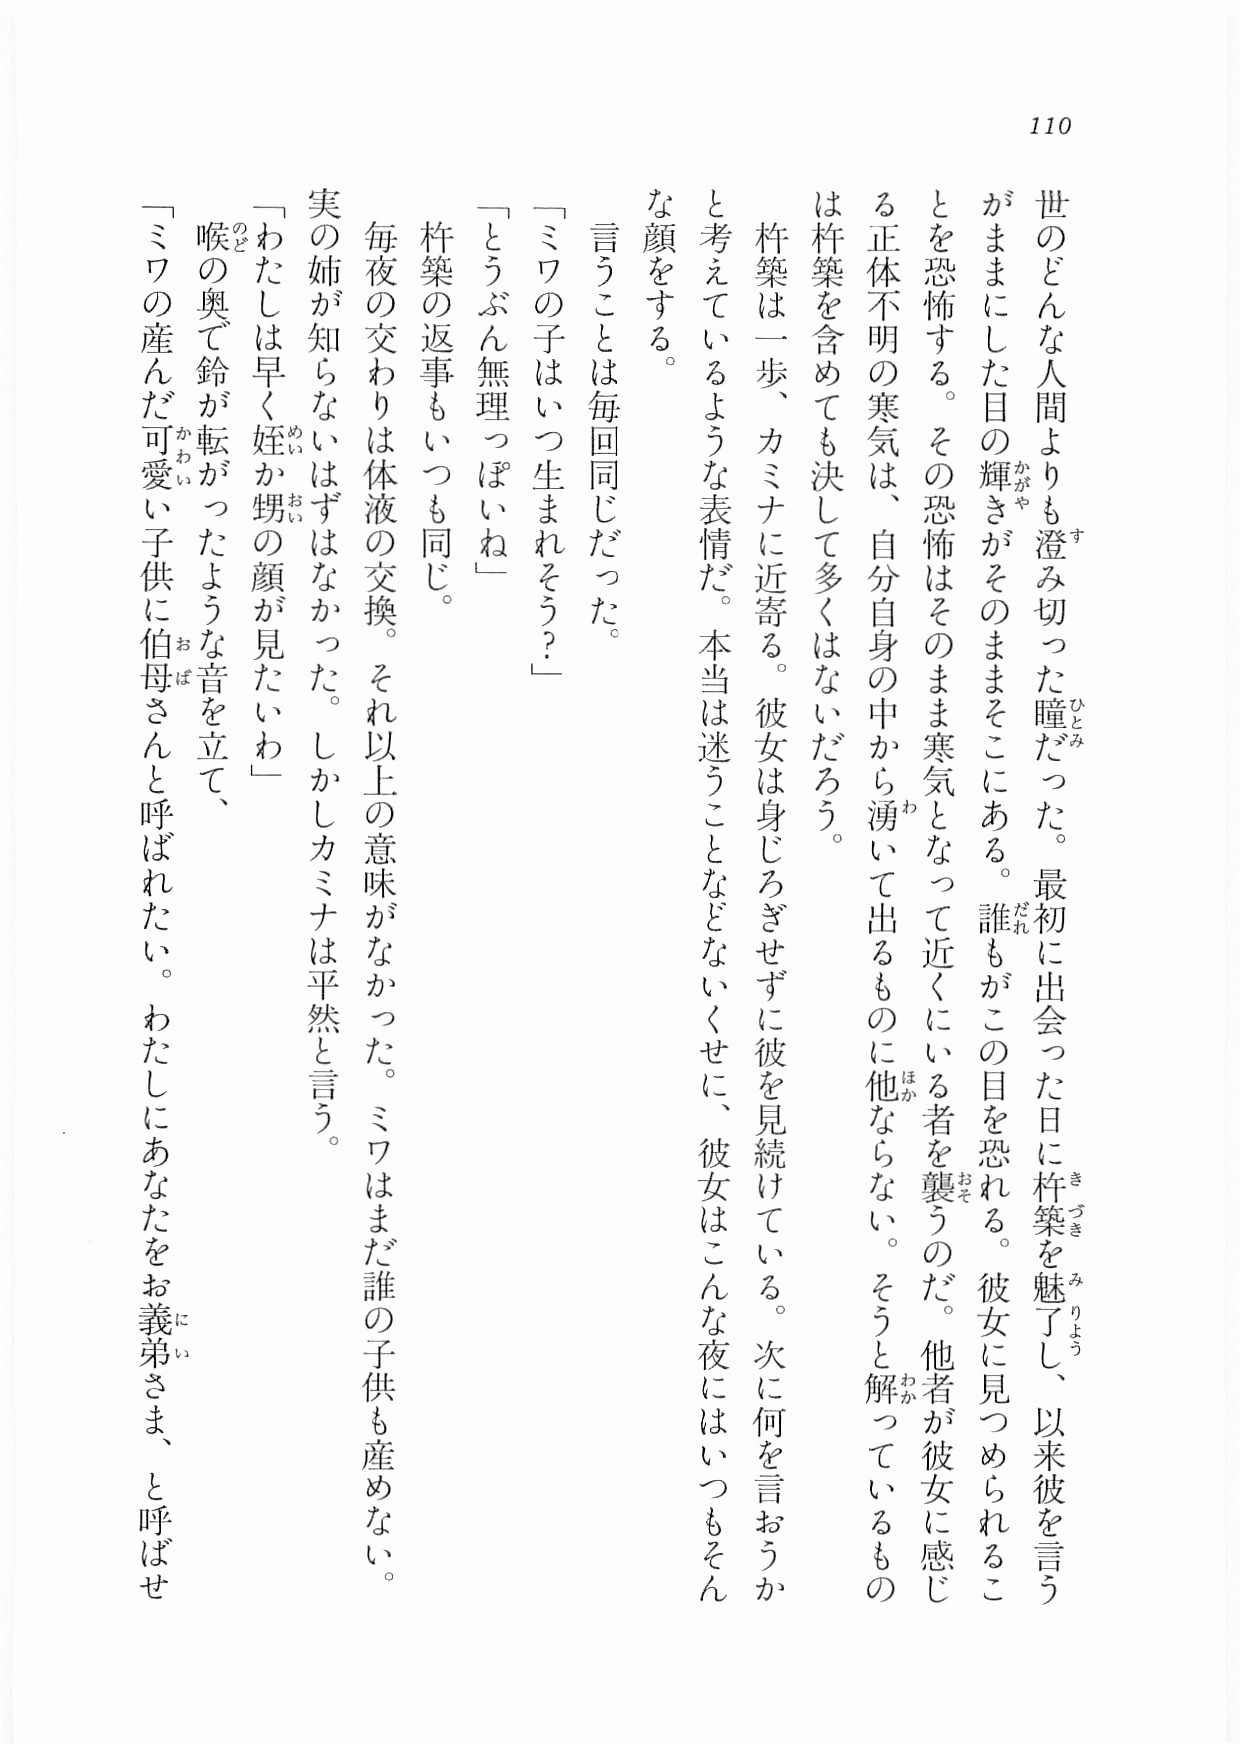 110
世のどんな人間よりも澄み切った瞳だった。最初に出会った日に杵築を魅了し、以来彼を言う
がままにした目の輝きがそのままそこにある。誰もがこの目を恐れる。彼女に見つめられるこ
とを恐怖する。その恐怖はそのまま寒気となって近くにいる者を襲うのだ。他者が彼女に感じ
る正体不明の寒気は、自分自身の中から湧いて出るものに他ならない。そうと解っているもの
は杵築を含めても決して多くはないだろう。
杵築は一歩、カミナに近寄る。彼女は身じろぎせずに彼を見続けている。次に何を言おうか
と考えているような表情だ。本当は迷うことなどないくせに、彼女はこんな夜にはいつもそん
な顔をする。
言うことは毎回同じだった。
「ミワの子はいつ生まれそう？」
「とうぶん無理っぽいね」
杵築の返事もいつも同じ。
毎夜の交わりは体液の交換。それ以上の意味がなかった。ミワはまだ誰の子供も産めない。
実の姉が知らないはずはなかった。しかしカミナは平然と言う。
「わたしは早く姪か甥の顔が見たいわ」
喉の奥で鈴が転がったような音を立て、
「ミワの産んだ可愛い子供に伯母さんと呼ばれたい。わたしにあなたをお義弟さま、と呼ばせ